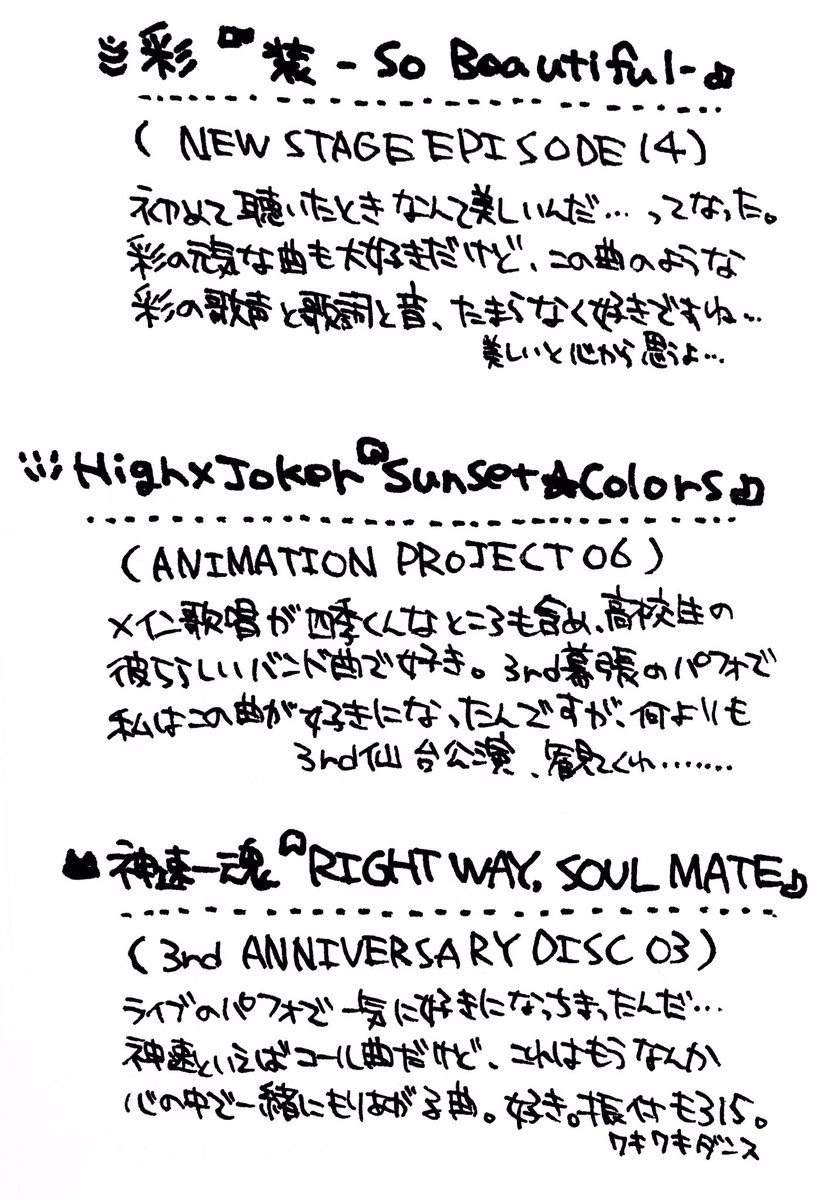 彩『装-So Beautiful-』
(NEW STAGE EPISODE 14)
初めて聴いたときなんて美しいんだ…ってなった。
彩の元気な曲も大好きだけど、この曲のような
彩の歌声と歌詞と音、たまらなく好きですね…
美しいと心から思うよ…
High×Joker『Sunset★Colors』
(ANIMATION PROJECT 06)
メイン歌唱が四季くんなところも含め、高校生の
彼ららしいバンド曲で好き。3rd幕張のパフォで
私はこの曲が好きになったんですが、何よりも
3rd仙台公演、観てくれ………
神速一魂『RIGHT WAY, SOUL MATE』
(3rd ANNIVERSARY DISC 03)
ライブのパフォで一気に好きになっちまったんだ…
神速といえばコール曲だけど、これはもうなんか
心の中で一緒にもりあがる曲。好き。振付も315。
ワキワキダンス